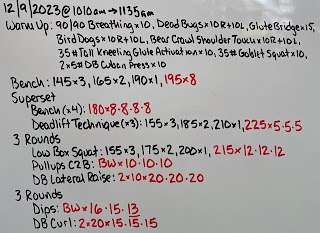 12/9/2023 @ 1010am → 1135am
Warm Up: 90/90 Breathing x10, Dead Bugs x10R+10L, Glute Bridge x15,
Bird Dogs x10R+10L, Bear Crawl Shoulder Touch x10R+10L,
35# Tall Kneeling Glute Activation x10, 35# Goblet Squat x10,
2x5# DB Cuban Press x10
Bench: 145x3, 165x2, 190x1, 195x8
Superset
Bench (x4): 180x8·8·8·8
Deadlift Technique (x3): 155x3, 185x2, 210x1, 225x5·5·5
3 Rounds
Low Box Squat: 155x3, 175x2, 200x1, 215x12·12·12
Pullups C2B: BWx10·10·10
DB Lateral Raise: 2x10x20·20·20
3 Rounds
Dips: BWx16·15·13
DB Curl: 2x20x15·15·15